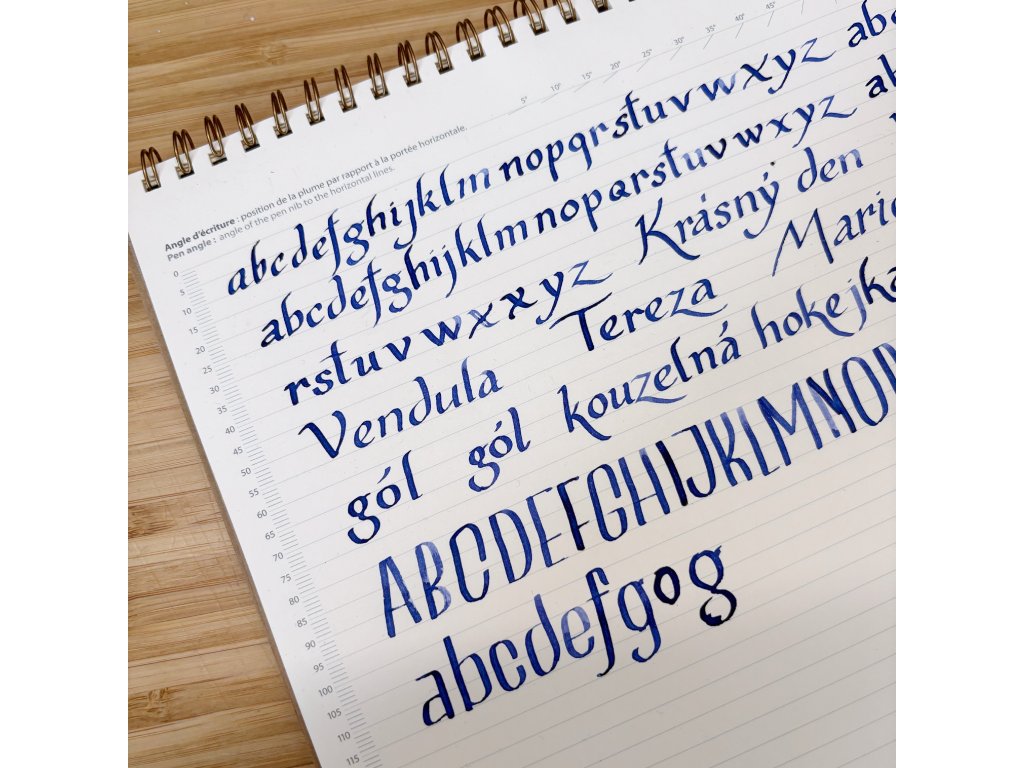 5° 10° 15° 20° 25° 30° 35° 40° 45°
Angle d'écriture : position de la plume par rapport à la portée horizontale.
Pen angle : angle of the pen nib to the horizontal lines.
abcdefghijklm nopqrstuvwxyz abc
abcdefghijklmnopqrstuvwxyz
rstuvwxxyz Krásný den
Vendula Tereza
gól gól kouzelná hokejka
ABCDEFGHIJKLMNO
abcdefgog
0
5
10
15
20
25
30
35
40
45
50
55
60
65
70
75
80
85
90
95
100
105
110
115